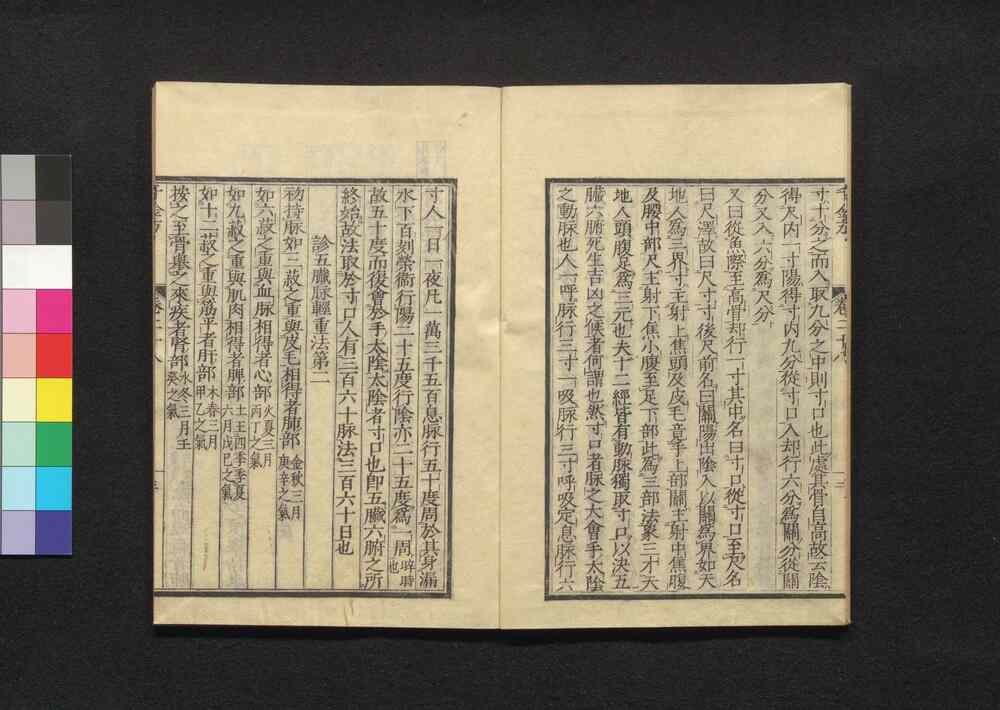 寸十分之而入取九分之中則寸口也此處其骨自高故云陰
得尺内一寸陽得寸内九分從寸口入却行六分爲關分從關
分又入六分爲尺分
又曰從魚際至高骨却行一寸其中名曰寸口從寸口至尺名
曰尺澤故曰尺寸寸後尺前名曰關陽出陰入以關爲界如天
地人爲三界寸主射上焦頭及皮毛竟手上部關主射中焦腹
及腰中部尺主射下焦小腹至足下部此爲三部法象三才天
地人頭腹足爲三元也夫十二經皆有動脉獨取寸口以決五
臓六腑死生吉凶之候者何謂也然寸口者脉之大會手太陰
之動脉也人一呼脉行三寸一吸脉行三寸呼吸定息脉行六
寸人一日一夜凡一萬三千五百息脉行五十度周於其身漏
水下百刻榮衞行陽二十五度行陰亦二十五度爲一周晬時也
故五十度而復會於手太陰太陰者寸口也即五臓六腑之所
終始故法取於寸口人有三百六十脉法三百六十日也
診五臓脉輕重法第二
初持脉如三菽之重與皮毛相得者肺部金秋三月庚辛之氣
如六菽之重與血脉相得者心部火夏三月丙丁之氣
如九菽之重與肌肉相得者脾部土王四季季夏六月戊己之氣
如十二菽之重與筋平者肝部木春三月甲乙之氣
按之至骨舉之來疾者腎部水冬三月壬癸之氣